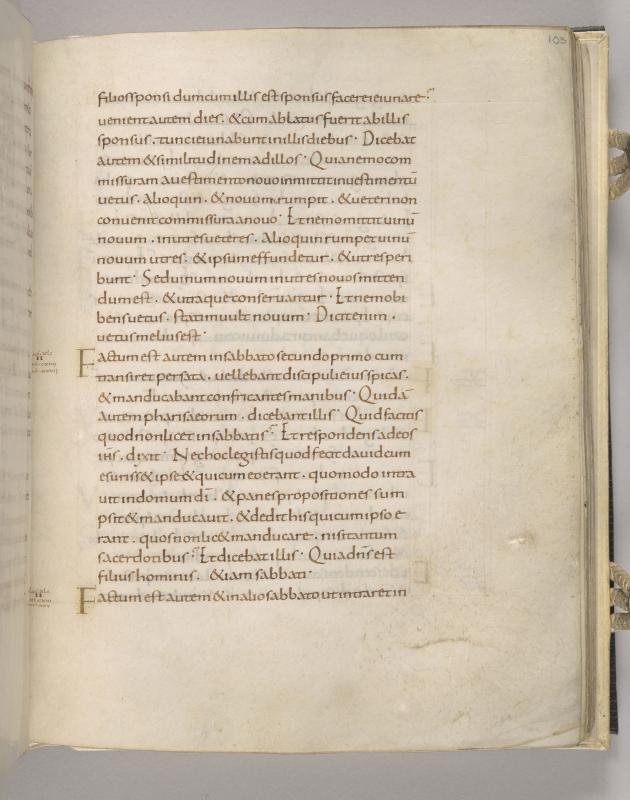 103
filios sponsi dum cum illis est sponsus facere ieiunare
venient autem dies · & cum ablatus fuerit ab illis
sponsus · tunc ieiunabunt in illis diebus · Dicebat
autem & similitudinem ad illos · Quia nemo com
missuram a uestimento nouo inmittit in uestimentū
uetus · Alioquin · & nouum rumpit · & ueteri non
conuenit commissura a nouo · Et nemo mittit uinū
nouum · in utres ueteres · Alioquin rumpet uinū
nouum utres · & ipsum effundetur · & utres peri
bunt · Sed uinum nouum in utres nouos mitten
dum est · & utraque conseruantur · Et nemo bi
bens uetus · statim uult nouum · Dicit enim ·
uetus melius est ·
Factum est autem in sabbato secundo primo cum
transiret per sata · uellebant discipuli eius spicas ·
& manducabant confricantes manibus · Quidā
autem pharisaeorum · dicebant illis · Quid facitis
quod non licet in sabbatis · Et respondens ad eos
ihs · dixit · Nec hoc legistis quod fecit dauid cum
esuriss& ipse & qui cum eo erant · quomodo intra
uit in domum dī · & panes propositiones sum
psit & manducauit · & dedit his qui cum ipso e
rant · quos non lic& manducare · nisi tantum
sacerdotibus · Et dicebat illis · Quia dn̄s est
filius hominis · &iam sabbati ·
Factum est autem & in alio sabbato ut intraret in